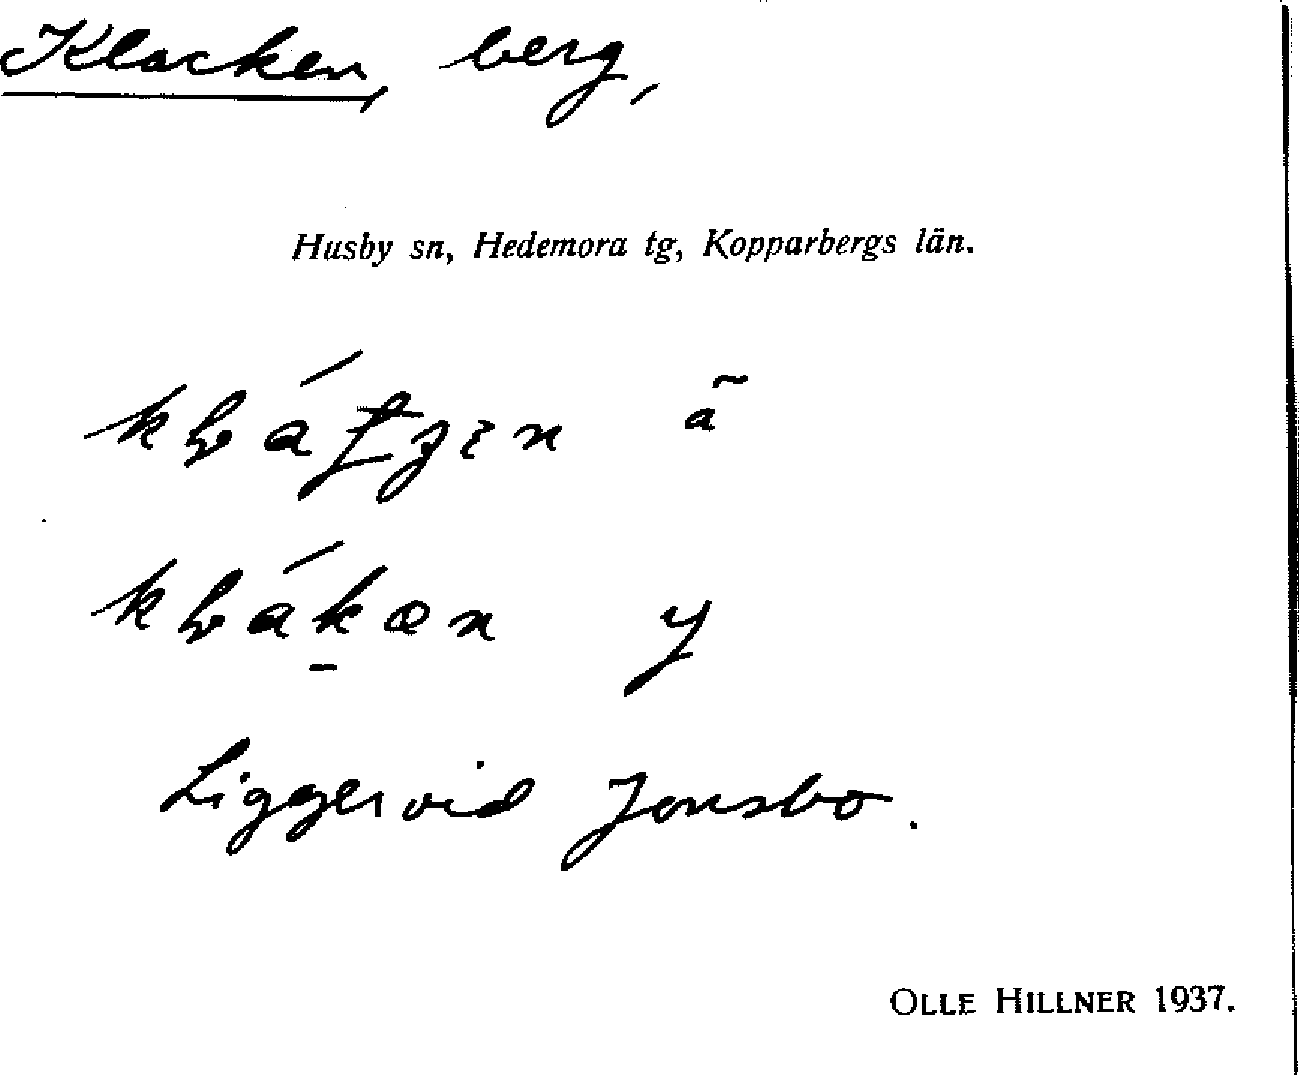 Klacken, berg,
Husby sn, Hedemora tg, Kopparbergs län.
ã
y
Liggervid Jonsbo.
OLLE HILLNER 1937.